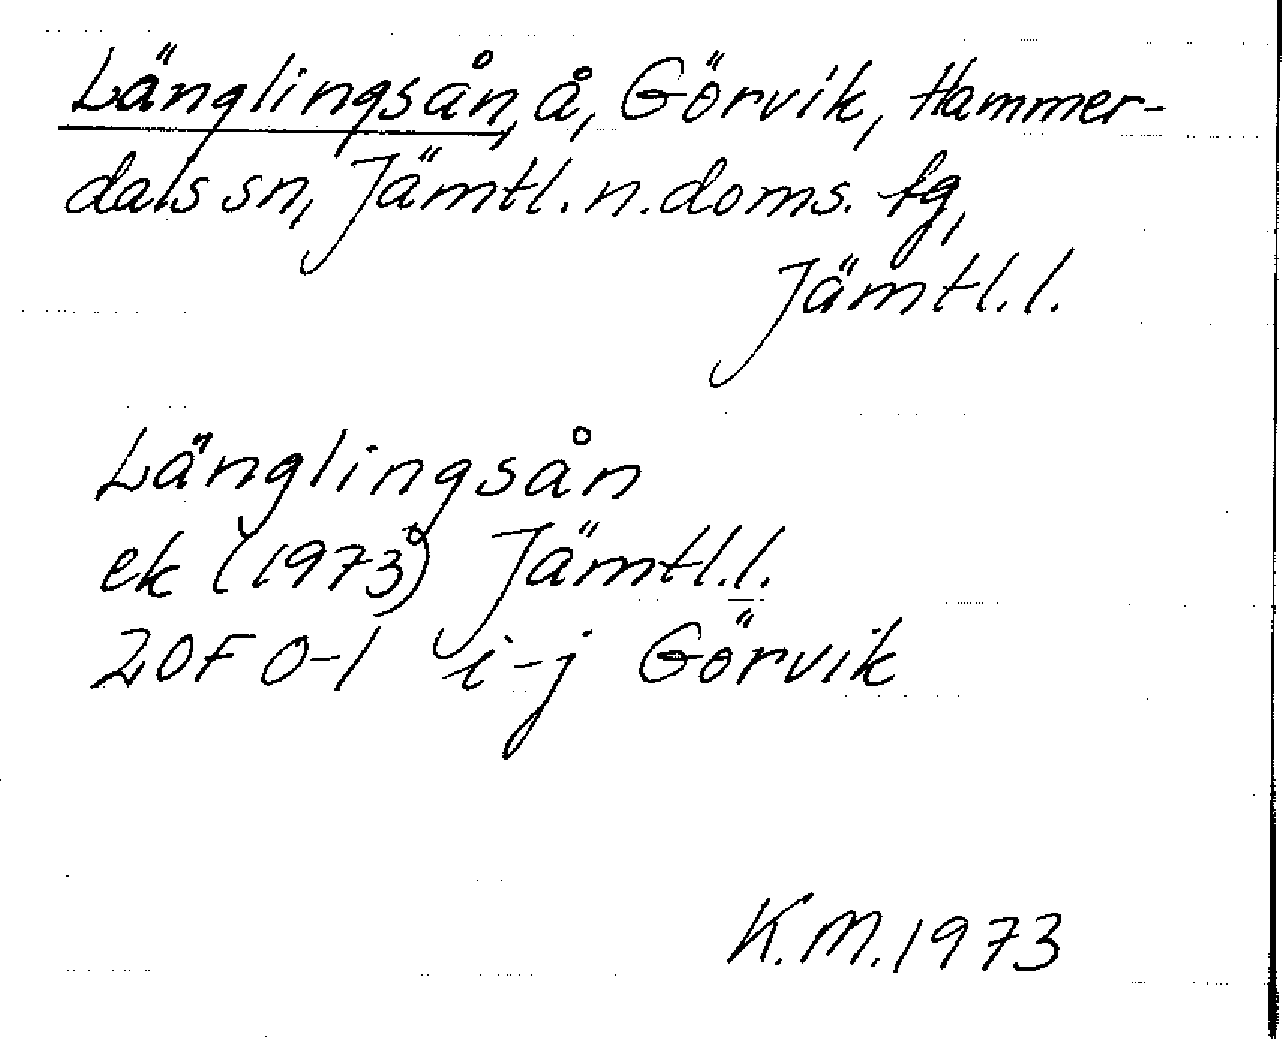 Länglingsån, å, Görvik, Hammer-
dals sn, Jämtl. n. doms. fg,
Jämtl. l.
Länglingsån
ek (1973) Jämtl. l.
20F 0-1 i-j Görvik
K.M. 1973